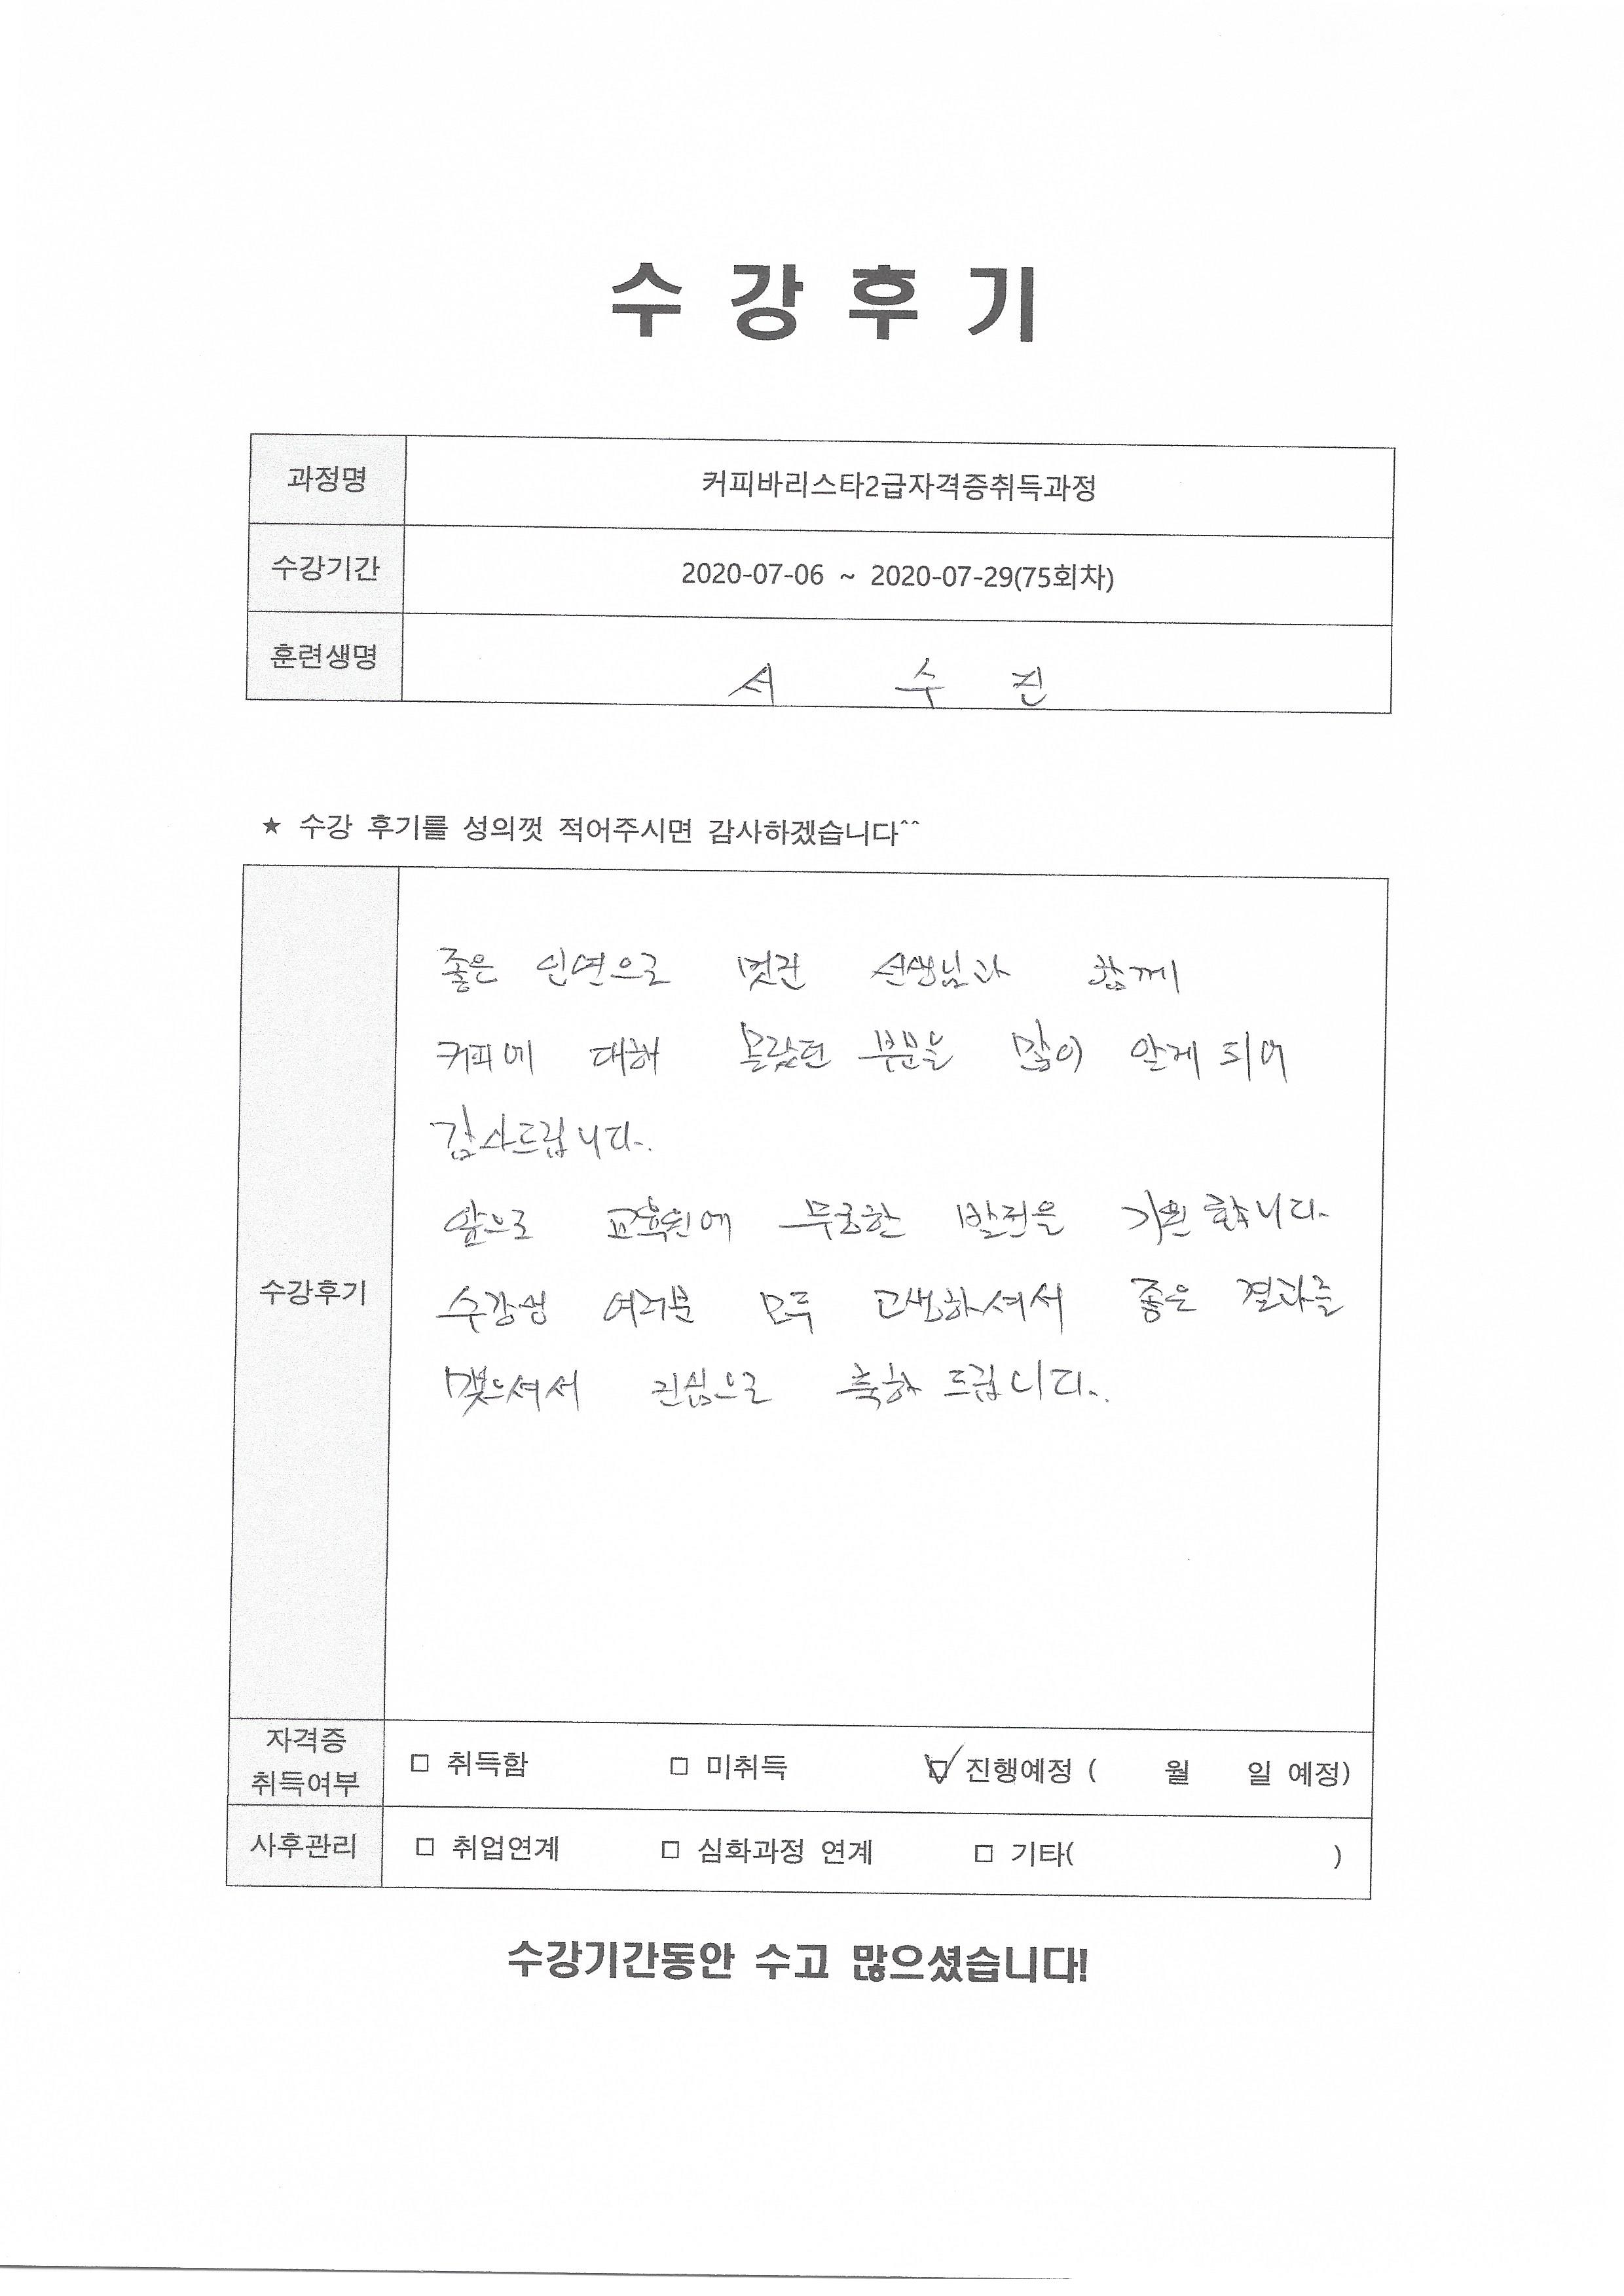 수 강 후 기
과정명 커피바리스타2급자격증취득과정
수강기간 2020-07-06 ~ 2020-07-29(75회차)
훈련생명 수 진
★ 수강 후기를 성의껏 적어주시면 감사하겠습니다^^
좋은 인연으로 멋진 선생님과 함께
커피에 대해 몰랐던 부분을 많이 알게 되어
감사드립니다.
앞으로 교육원에 무궁한 발전을 기원 합니다.
수강후기
수강생 여러분 모두 고생하셔서 좋은 결과를
맺으셔서 진심으로 축하 드립니다..
자격증
취득여부 □ 취득함 □ 미취득 ☑ 진행예정 ( 월 일 예정)
사후관리 □ 취업연계 □ 심화과정 연계 □ 기타( )
수강기간동안 수고 많으셨습니다!